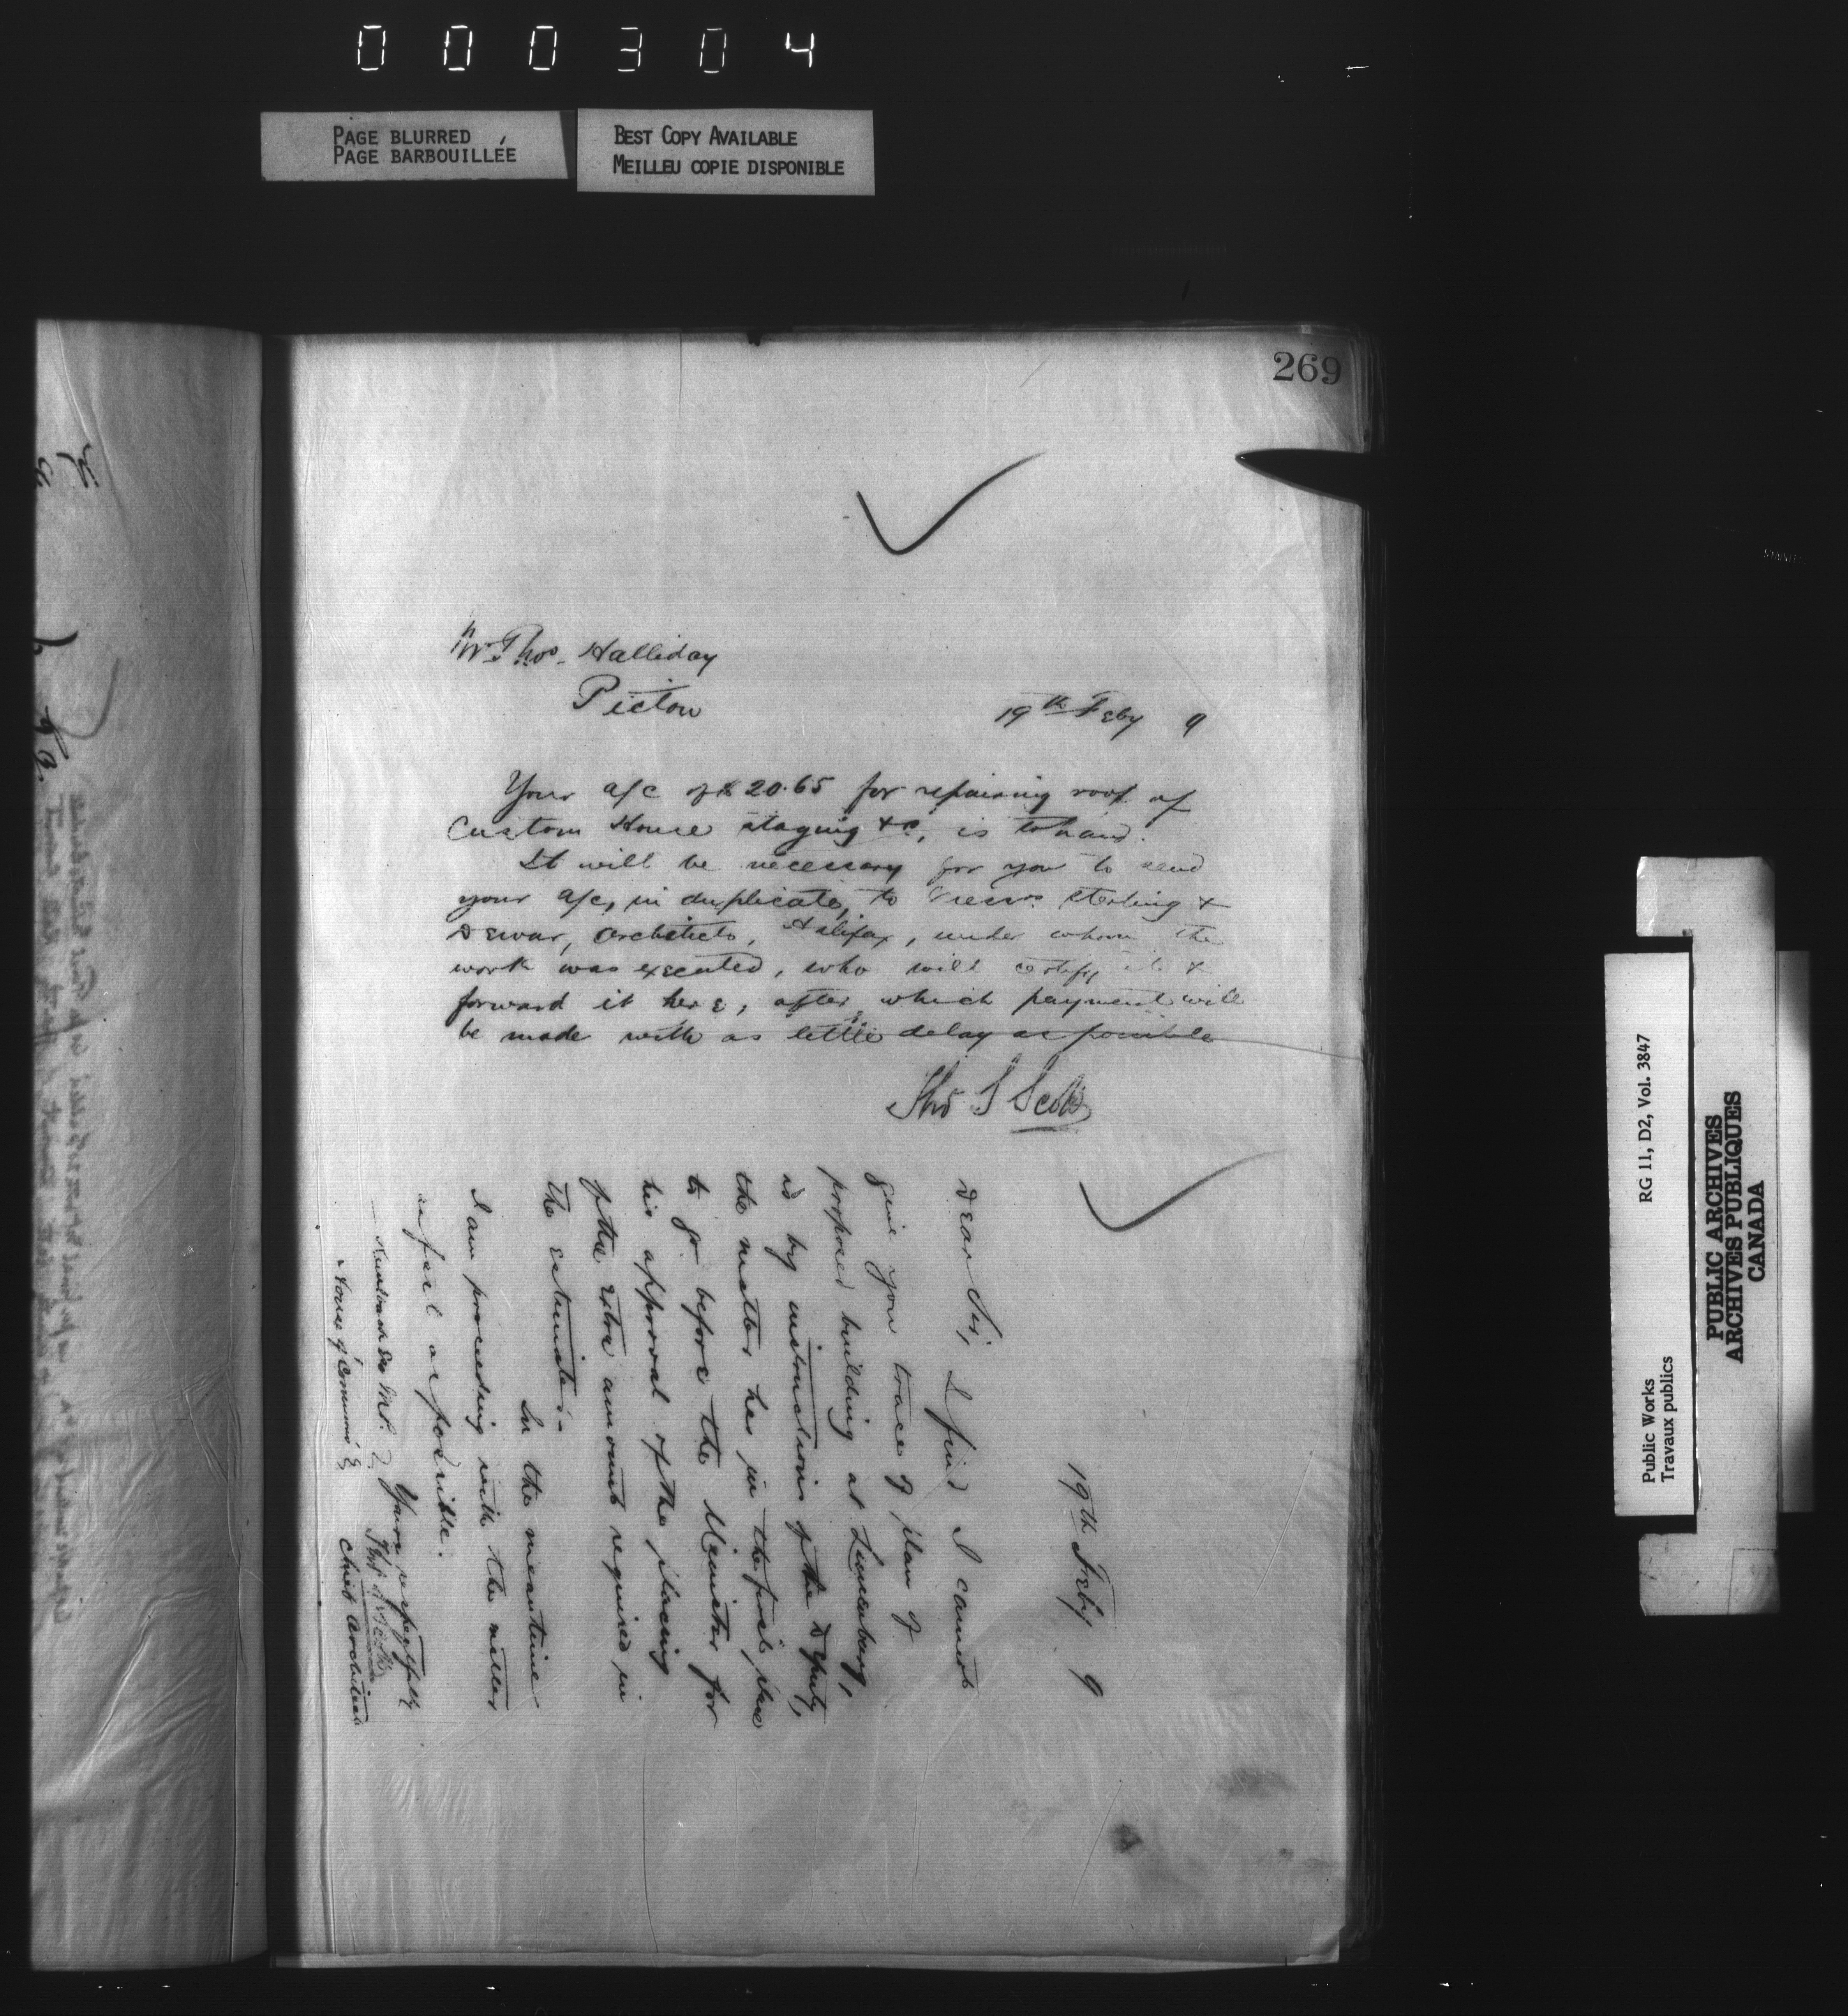 000304
PAGE BLURRED
PAGE BARBOUILLÉE
BEST COPY AVAILABLE
MEILLEU COPIE DISPONIBLE
269
Mr Thos. Halliday
Pictou
19th Feby 9
Your a/c of $20.65 for repairing roof of
Custom House staging &c, is to hand.
It will be necessary for you to send
your a/c, in duplicate, to Messrs Sterling &
Dewar, Architects, Halifax, under whom the
work was executed, who will certify it &
forward it here, after which payment will
be made with as little delay as possible
Thos S Scott
19th Feby 9
Dear Sir, I find I cannot
give you trace of plan of
proposed building at Lunenburg,
as by instructions of the Deputy,
the matter has in the first place
to go before the Minister for
his approval of the placing
of the extra amount required in
the estimates.
In the meantime
I am proceeding with the matter
as fast as possible.
Yours respectfully
Thos S Scott
Chief Architect
M.P.
House of Commons
RG 11, D2, Vol. 3847
Public Works
Travaux publics
PUBLIC ARCHIVES
ARCHIVES PUBLIQUES
CANADA